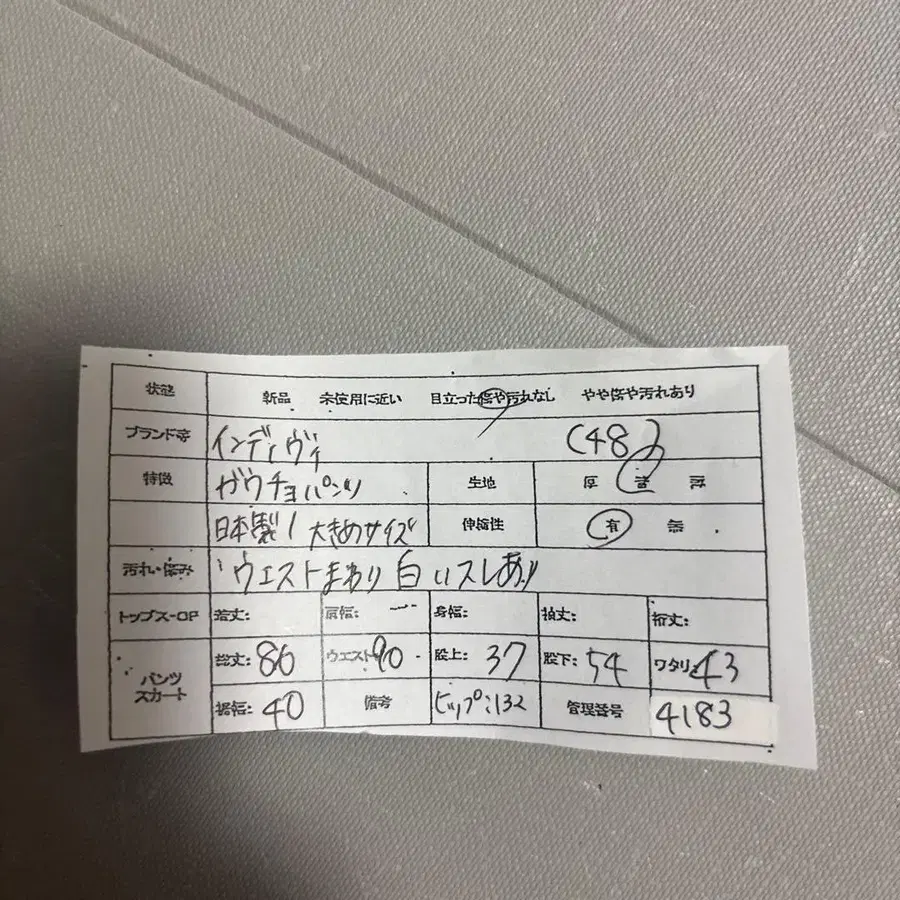 状態 新品 未使用に近い 目立った傷や汚れなし やや傷や汚れあり
ブランド等 インディヴィ (48)
特徴 ガウチョパンツ 生地 厚 普 薄
日本製 / 大きめサイズ 伸縮性 有 無
汚れ・傷み ウエストまわり白いスレあり
トップス・OP 着丈: 肩幅: 身幅: 袖丈: 裄丈:
パンツ スカート 総丈: 86 ウエスト: 90 股上: 37 股下: 54 ワタリ: 43
裾幅: 40 備考 ヒップ: 132 管理番号 4183